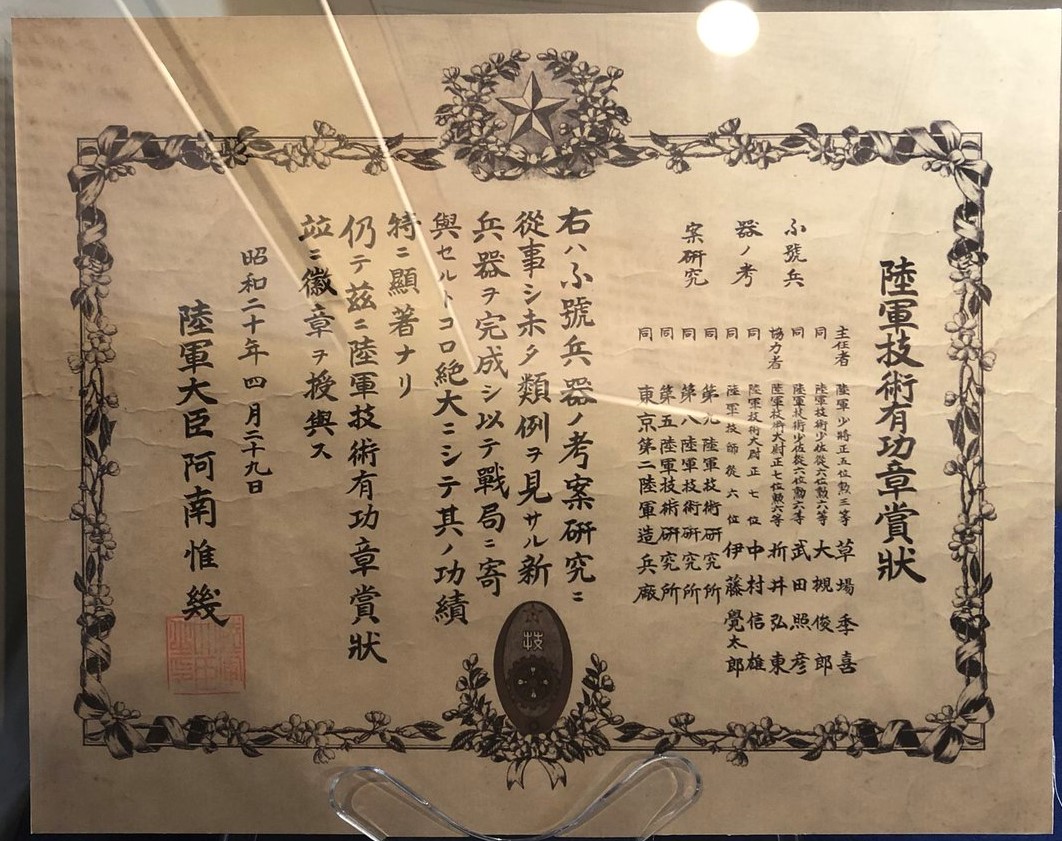 陸軍技術有功章賞狀
ふ號兵
器ノ考
案研究
主任者 陸軍少將正五位勲三等 草場季喜
同 陸軍技術少佐從六位勲六等 大槻俊郎
同 陸軍技術少佐從六位勲六等 武田照彦
協力者 陸軍技術大尉正七位勲六等 折井弘東
同 陸軍技術大尉正七位 中村信雄
同 陸軍技師從六位 伊藤覺太郎
同 第九陸軍技術研究所
同 第八陸軍技術研究所
同 第五陸軍技術研究所
同 東京第二陸軍造兵廠
右ハふ號兵器ノ考案研究ニ
從事シ未タ類例ヲ見サル新
兵器ヲ完成シ以テ戰局ニ寄
與セルトコロ絶大ニシテ其ノ功績
特ニ顯著ナリ
仍テ茲ニ陸軍技術有功章賞狀
竝ニ徽章ヲ授與ス
昭和二十年四月二十九日
陸軍大臣 阿南惟幾
技